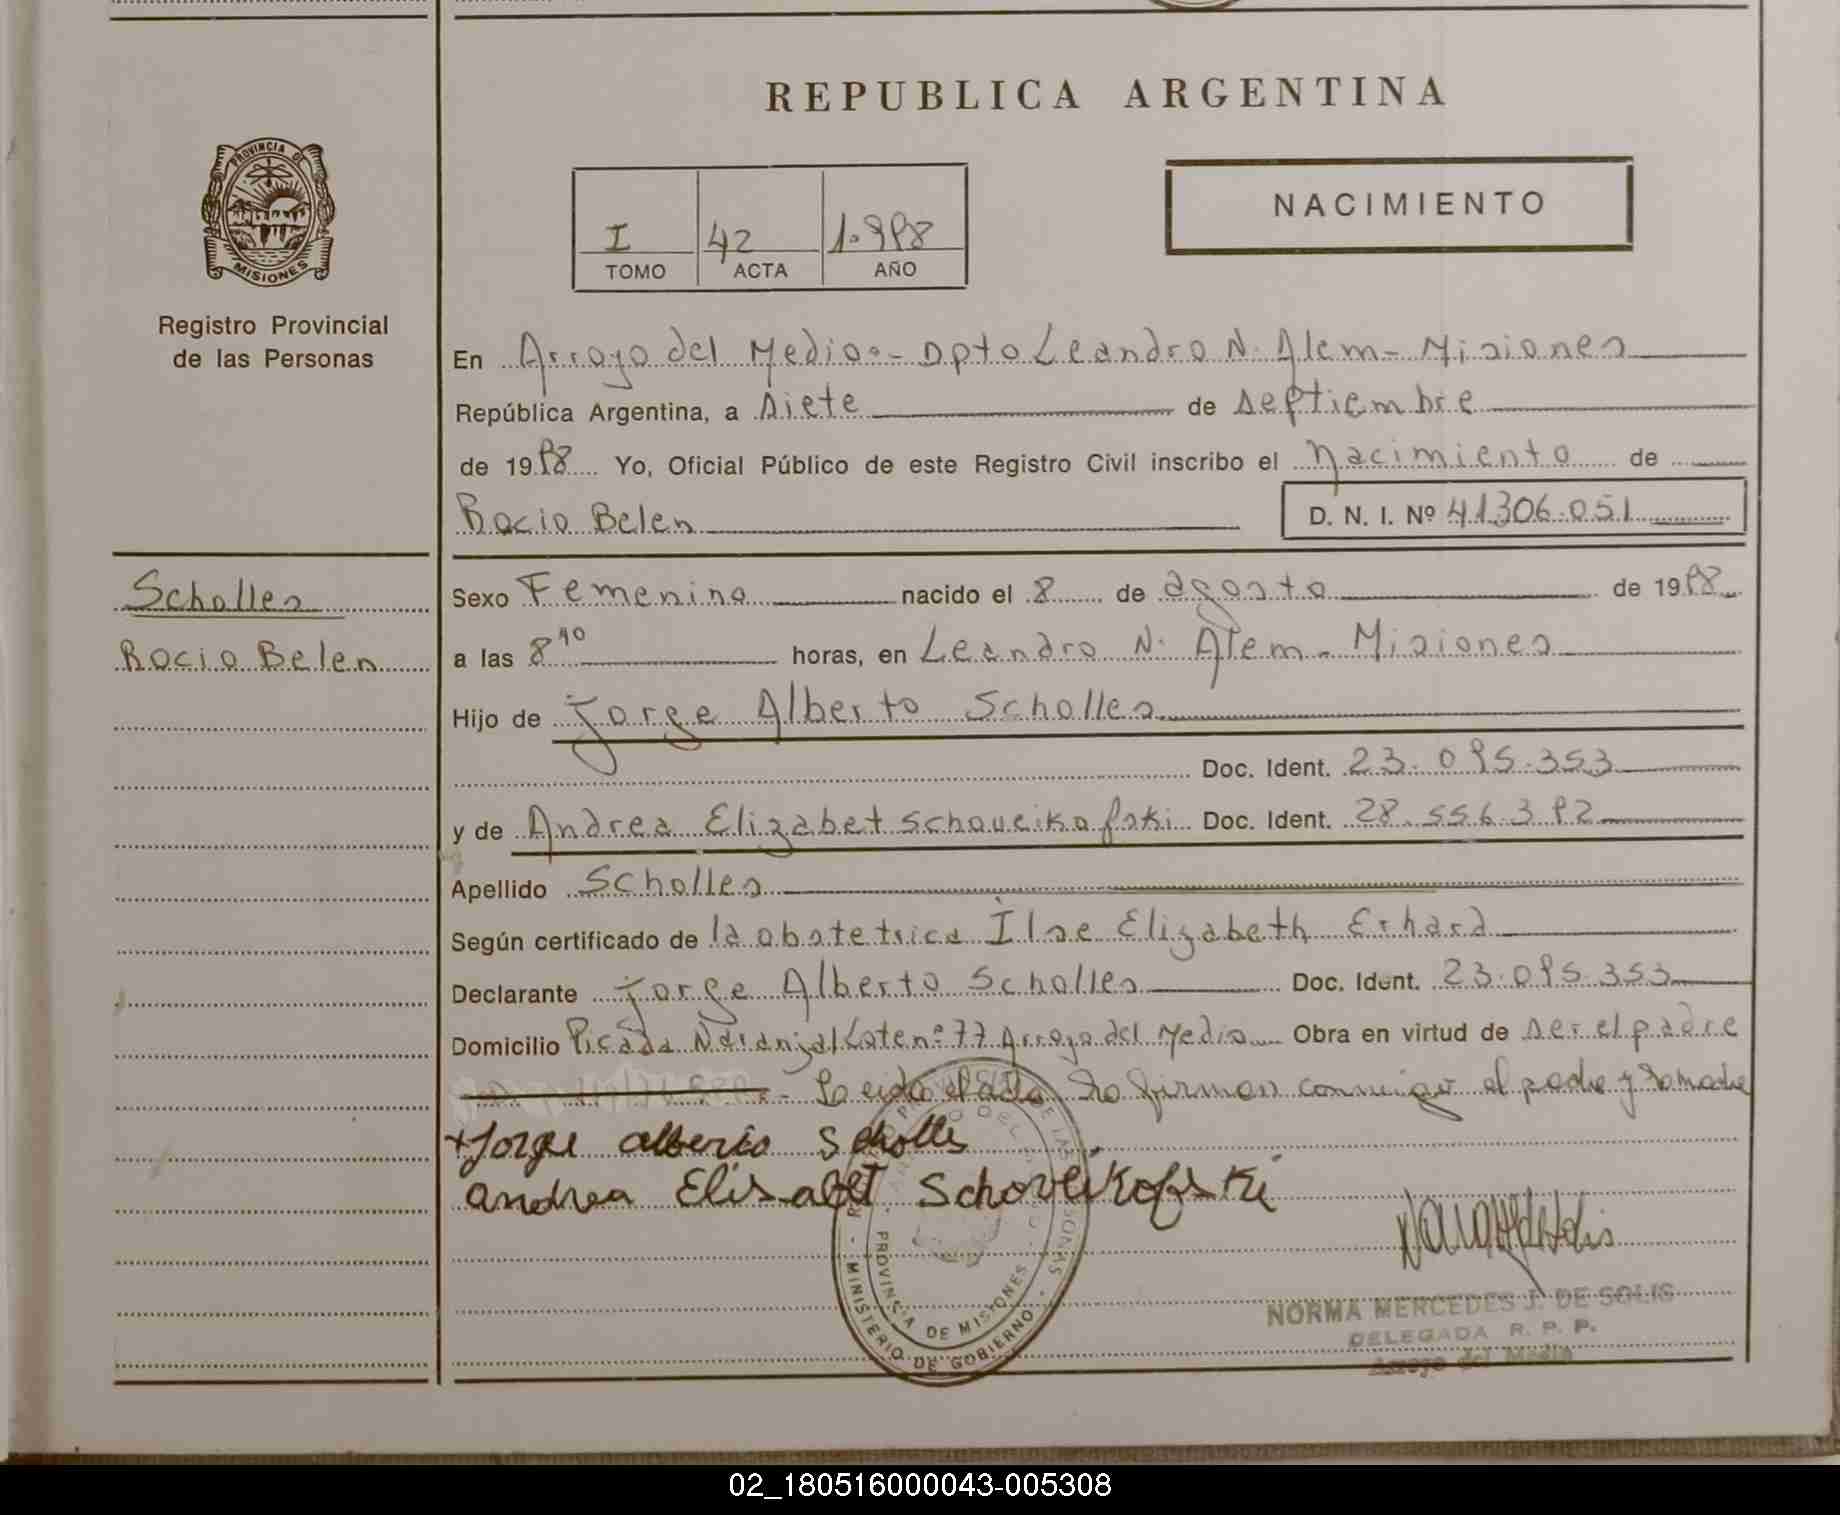 REPUBLICA ARGENTINA
PROVINCIA DE
MISIONES
Registro Provincial
de las Personas
I
TOMO
42
ACTA
1.998
AÑO
NACIMIENTO
En Arroyo del Medio.- Dpto Leandro N. Alem - Misiones
República Argentina, a siete de septiembre
de 1998 Yo, Oficial Público de este Registro Civil inscribo el Nacimiento de
Rocio Belen D. N. I. Nº 41306.051
Scholles
Rocio Belen
Sexo Femenino nacido el 8 de agosto de 1998
a las 8 40 horas, en Leandro N. Alem - Misiones
Hijo de Jorge Alberto Scholles
Doc. Ident. 23.095.353
y de Andrea Elizabet Schoveikofski Doc. Ident. 28.556.392
Apellido Scholles
Según certificado de la obstetrica Ilse Elizabeth Erhard
Declarante Jorge Alberto Scholles Doc. Ident. 23.095.353
Domicilio Picada Naranjal Lote nº 77 Arroyo del Medio Obra en virtud de ser el padre
Leida el acta la firman conmigo el padre y la madre
Jorge alberto Scholles
andrea Elisabet Schoveikofski
PROVINSIA DE MISIONES
MINISTERIO DE GOBIERNO
NORMA MERCEDES J. DE SOLIS
DELEGADA R. P. P.
Arroyo del Medio
02_180516000043-005308